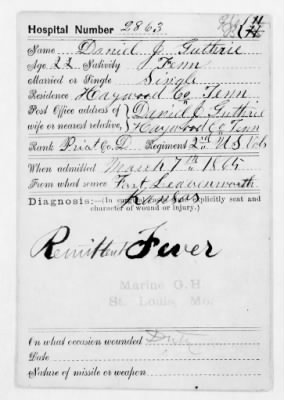 Hospital Number 2863
Name Daniel J Guthrie
Age 22 Nativity Tenn
Married or Single Single
Residence Haywood Co Tenn
Post Office address of Daniel J Guthrie
wife or nearest relative, Haywood Co Tenn
Rank Priv Co. D Regiment 2nd U S Vols
When admitted March 7th 1865
From what source Fort Leavenworth
Kansas
Diagnosis:—(In explicitly seat and
character of wound or injury.)
Remittent Fever
Marine G. H
St. Louis, Mo.
On what occasion wounded
Date
Nature of missile or weapon